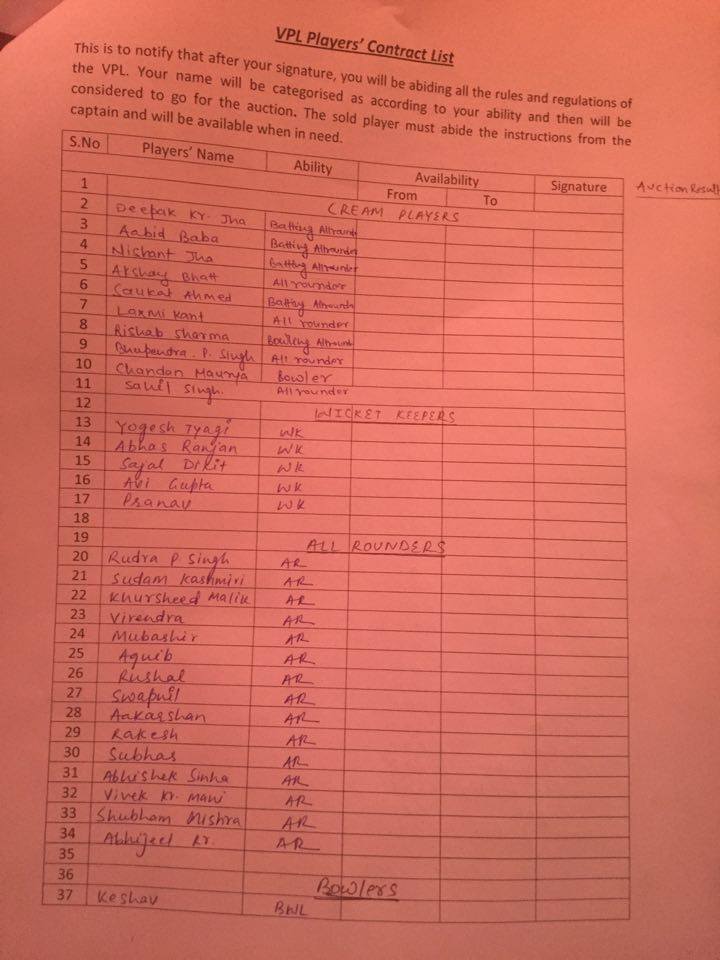 VPL Players' Contract List
This is to notify that after your signature, you will be abiding all the rules and regulations of
the VPL. Your name will be categorised as according to your ability and then will be
considered to go for the auction. The sold player must abide the instructions from the
captain and will be available when in need.
S.No Players' Name Ability Availability Signature Auction Result
From To
1 CREAM PLAYERS
2 Deepak Kr. Jha Batting Allround
3 Aabid Baba Batting Allrounder
4 Nishant Jha Batting Allrounder
5 Akshay Bhatt All rounder
6 Saukat Ahmed Batting Allrounde
7 Laxmi Kant All rounder
8 Rishab Sharma Bowling Allround
9 Bhupendra . P. Singh All rounder
10 Chandan Maurya Bowler
11 Sahil Singh. All rounder
12 WICKET KEEPERS
13 Yogesh Tyagi WK
14 Abhas Ranjan WK
15 Sajal Dikit WK
16 Avi Gupta WK
17 Pranav WK
18
19 ALL ROUNDERS
20 Rudra P Singh AR
21 Sudam Kashmiri AR
22 Khursheed Malik AR
23 Virendra AR
24 Mubashir AR
25 Aquib AR
26 Rushal AR
27 Swapnil AR
28 Aakarshan AR
29 Rakesh AR
30 Subhas AR
31 Abhishek Sinha AR
32 Vivek Kr. Mani AR
33 Shubham Mishra AR
34 Abhijeet Kr. AR
35
36 Bowlers
37 Keshav BWL